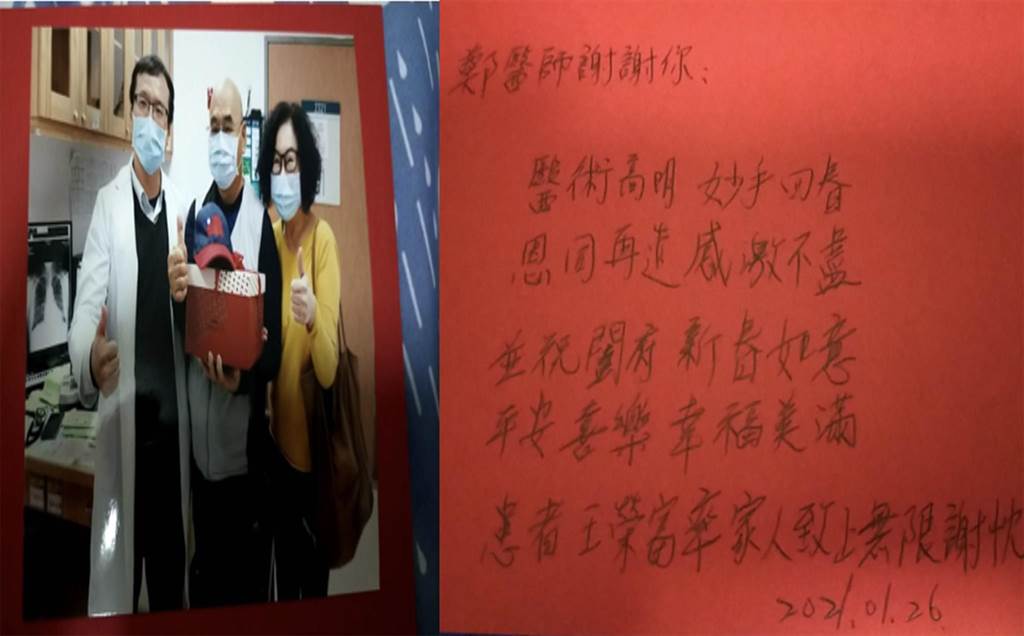 鄭醫師謝謝你：
醫術高明 妙手回春
恩同再造 感激不盡
並祝闔府 新春如意
平安喜樂 幸福美滿
患者王榮富率家人致上無限謝忱
2021.01.26